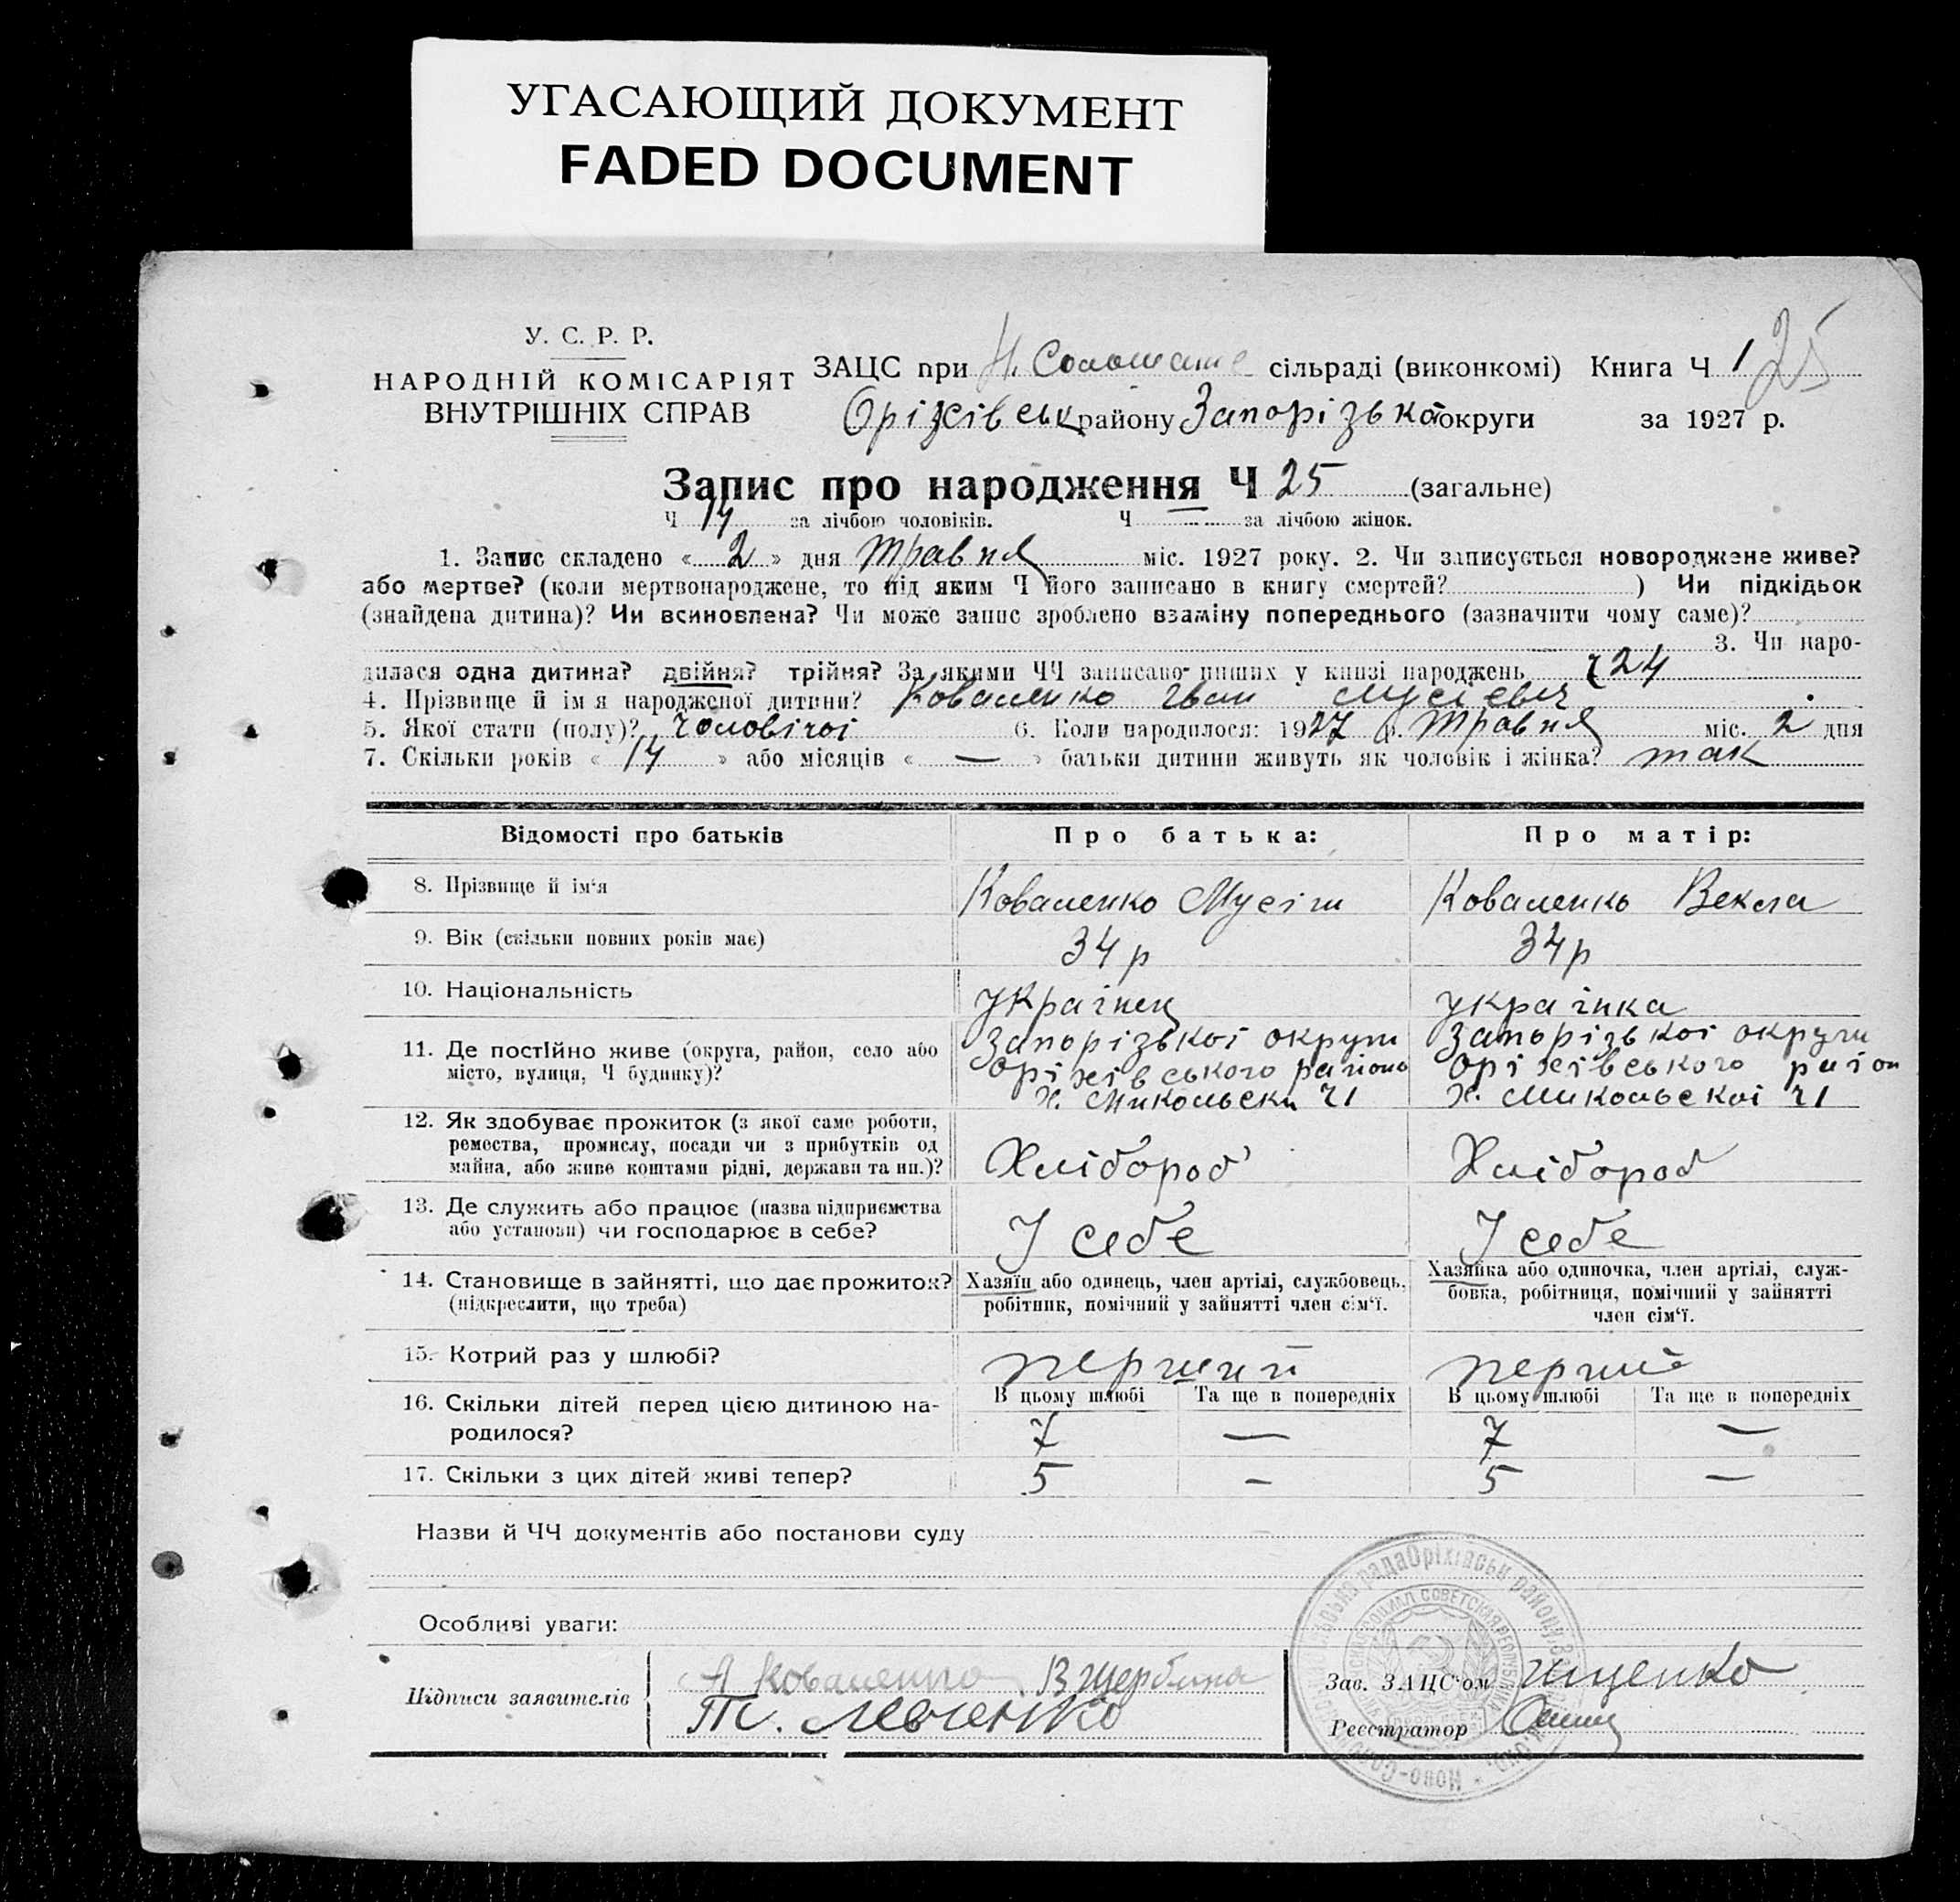 УГАСАЮЩИЙ ДОКУМЕНТ
FADED DOCUMENT
У. С. Р. Р.
НАРОДНІЙ КОМІСАРІЯТ
ВНУТРІШНІХ СПРАВ
ЗАЦС при Н. сільраді (виконкомі) Книга Ч 1 25
Оріхівськ району Запорізької округи за 1927 р.
Запис про народження Ч 25 (загальне)
Ч 14 за лічбою чоловіків. Ч за лічбою жінок.
1. Запис складено « 2 » дня Травня міс. 1927 року. 2. Чи записується новороджене живе?
або мертве? (коли мертвонароджене, то під яким Ч його записано в книгу смертей? ) Чи підкідьок
(знайдена дитина)? Чи всиновлена? Чи може запис зроблено взаміну попереднього (зазначити чому саме)?
3. Чи наро-
дилася одна дитина? двійня? трійня? За якими ЧЧ записано инших у книзі народжень ч 24
4. Прізвище й ім я народженої дитини? Коваленко Іван Мусієвич
5. Якої стати (полу)? чоловічої 6. Коли народилося: 1927 р. Травня міс. 2 дня
7. Скільки років « 14 » або місяців « — » батьки дитини живуть як чоловік і жінка? так
Відомості про батьків Про батька: Про матір:
8. Прізвище й ім'я Коваленко Мусій Коваленко Векла
9. Вік (скільки повних років має) 34 р 34 р
10. Національність українец українка
11. Де постійно живе (округа, район, село або місто, вулиця, Ч будинку)?
Запорізької округи Запорізької округи
Оріхівського району Оріхівського район
х. Микольски Ч1 х. Микольскої Ч1
12. Як здобуває прожиток (з якої саме роботи,
ремества, промислу, посади чи з прибутків од
майна, або живе коштами рідні, держави та ин.)? Хлібороб Хлібороб
13. Де служить або працює (назва підприємства
або установи) чи господарює в себе? У себе У себе
14. Становище в зайнятті, що дає прожиток?
(підкреслити, що треба)
Хазяїн або одинець, член артілі, службовець,
робітник, помічний у зайнятті член сім'ї.
Хазяйка або одиночка, член артілі, служ-
бовка, робітниця, помічний у зайнятті
член сім'ї.
15. Котрий раз у шлюбі? перший перший
В цьому шлюбі Та ще в попередніх В цьому шлюбі Та ще в попередніх
16. Скільки дітей перед цією дитиною на-
родилося? 7 — 7 —
17. Скільки з цих дітей живі тепер? 5 — 5 —
Назви й ЧЧ документів або постанови суду
Особливі уваги:
Підписи заявителів А Коваленко В Щербина
Т. Левченко
Зав. ЗАЦС'ом Іщенко
Реєстратор